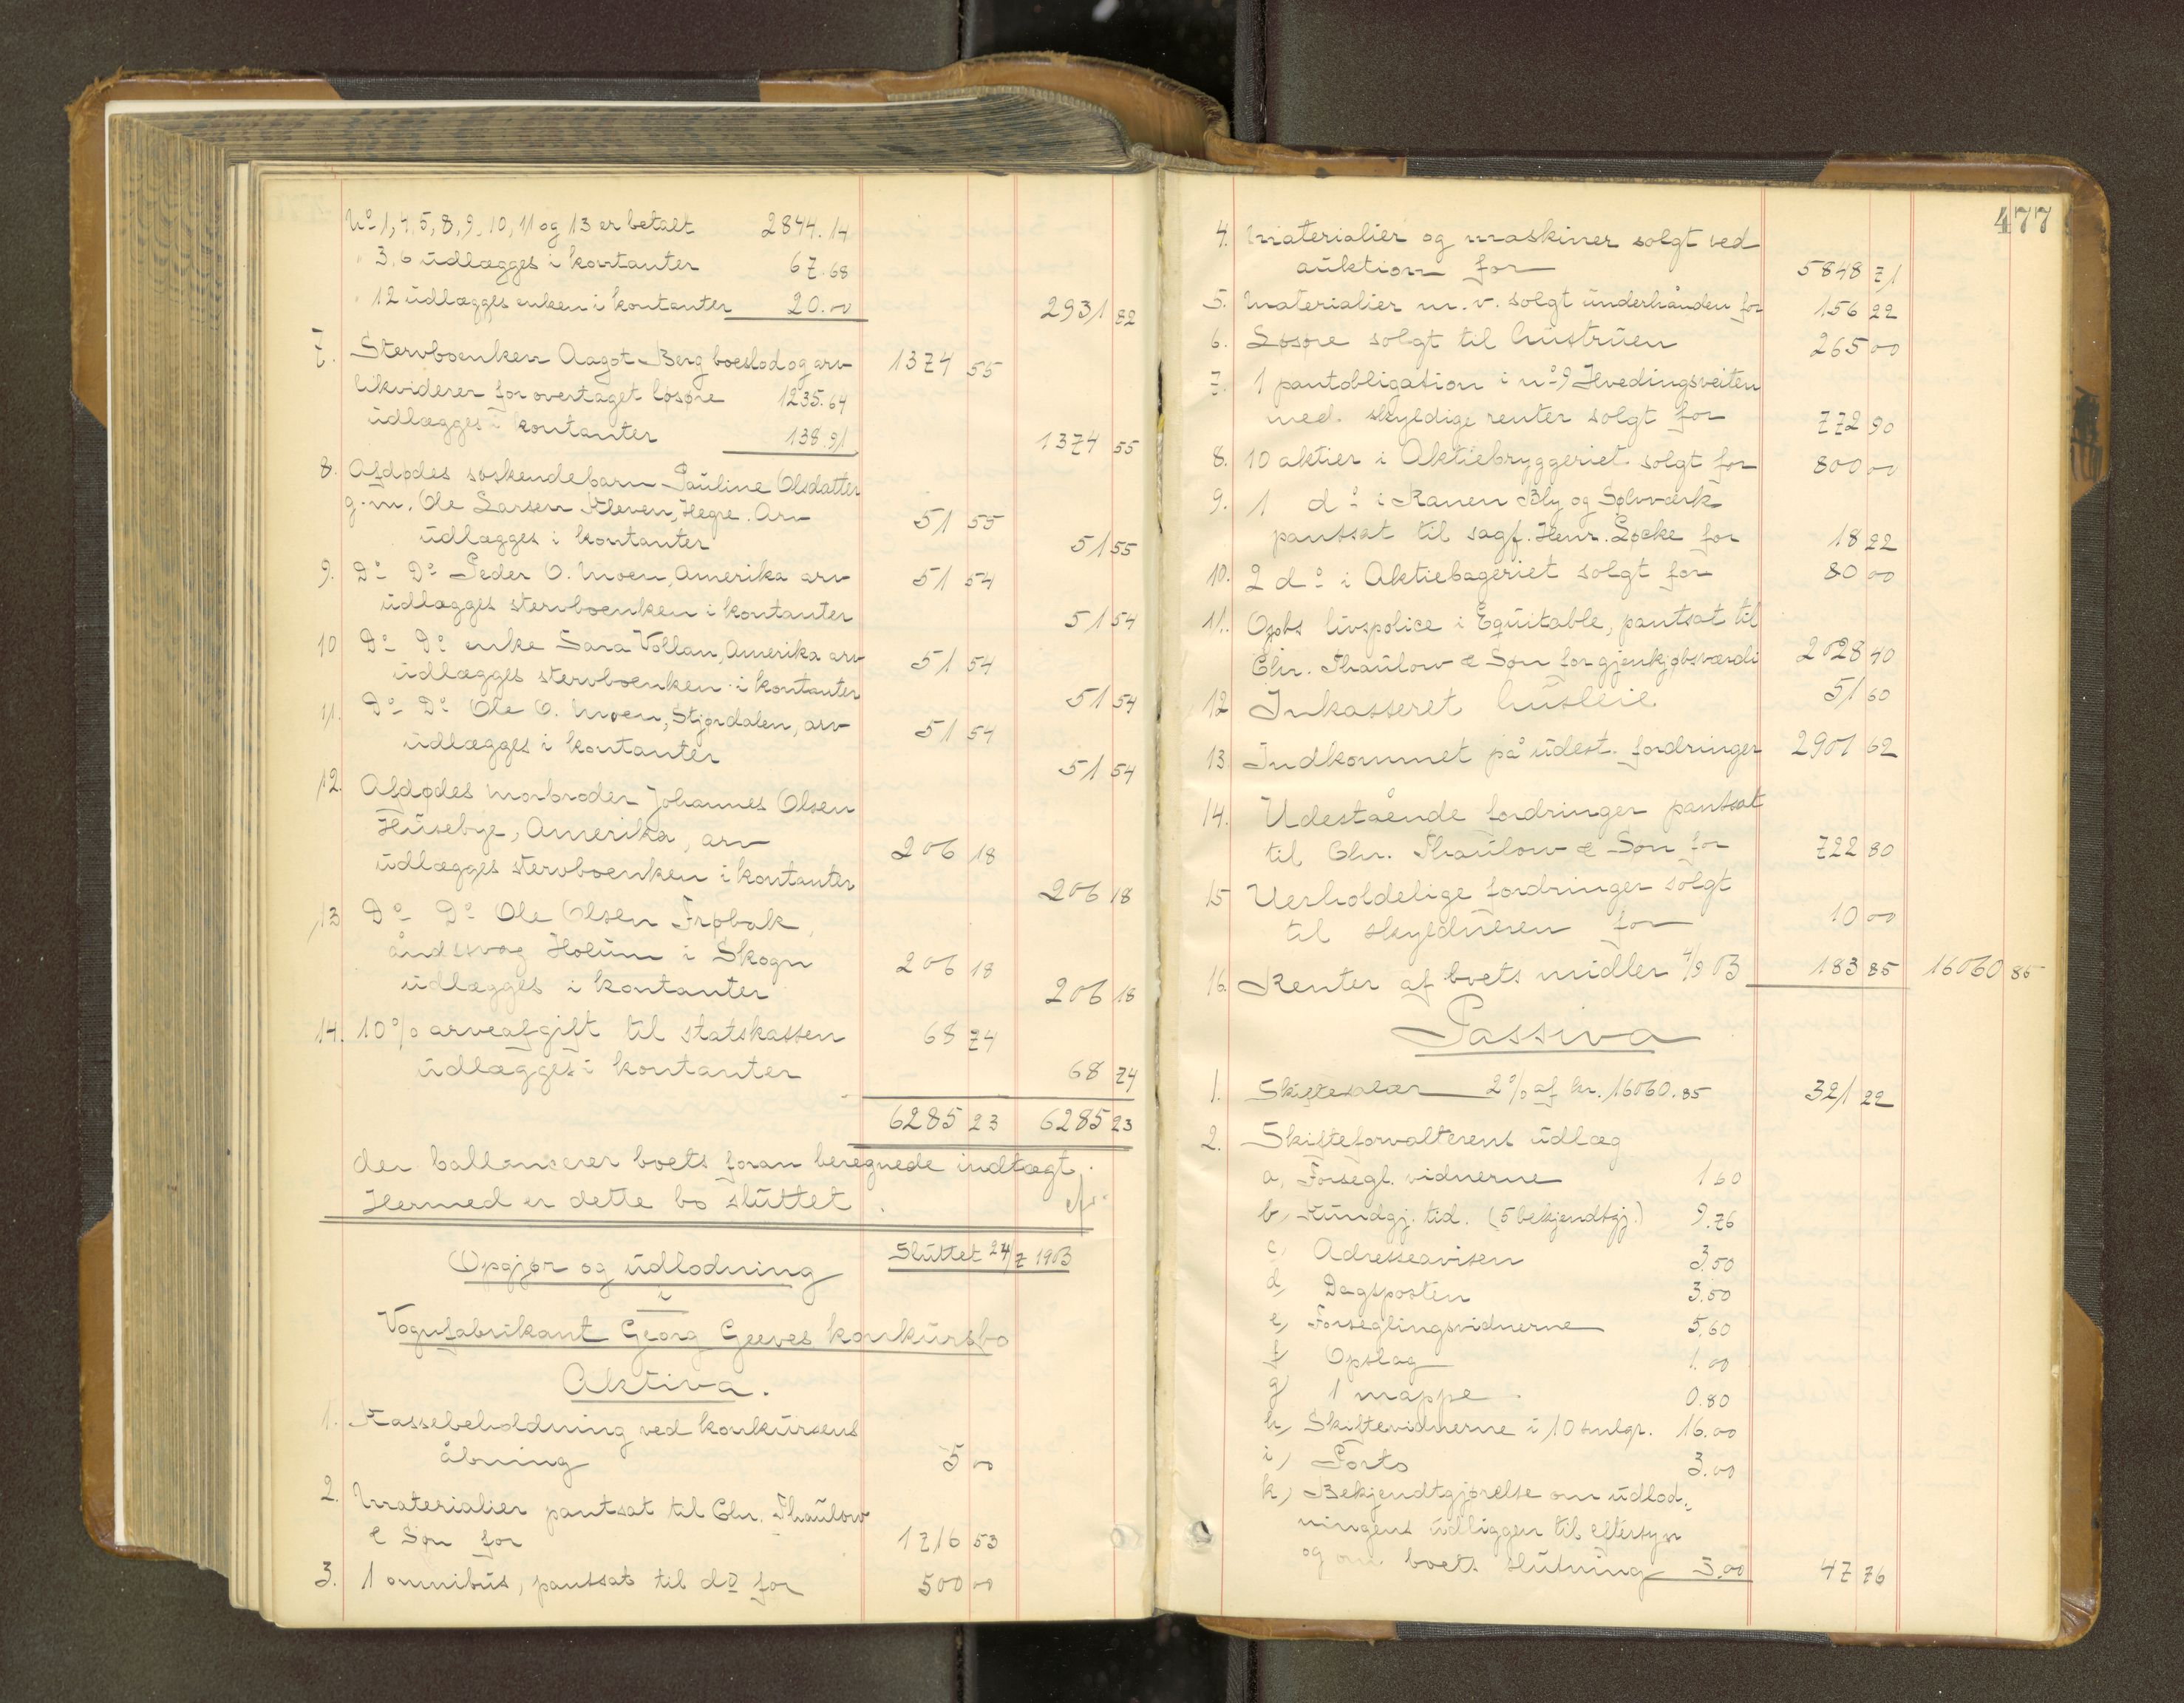 No 1, 4, 5, 8, 9, 10, 11 og 13 er betalt 2844.14
" 3, 6 udlægges i kontanter 67.68
" 12 udlægges enken i kontanter 20.00 2931 82
7. Stervboenken Aagot Berg boeslod og arv 1374 55
likviderer for overtaget løsøre 1235.64
udlægges i kontanter 138.91 1374 55
8. Afdødes søskendebarn Pauline Olsdatter
g.m. Ole Larsen Kleven, Hegre. Arv 51 55
udlægges i kontanter 51 55
9. Do Do Peder O. Moen, Amerika arv 51 54
udlægges stervboenken i kontanter 51 54
10 Do Do enke Sara Vollan, Amerika arv 51 54
udlægges stervboenken i kontanter 51 54
11. Do Do Ole O. Moen, Stjørdalen, arv 51 54
udlægges i kontanter 51 54
12. Afdødes morbroder Johannes Olsen
Huseby, Amerika, arv 206 18
udlægges stervboenken i kontanter 206 18
13 Do Do Ole Olsen Frøbak,
åndssvag Holum i Skogn 206 18
udlægges i kontanter 206 18
14. 10% arveafgift til statskassen 68 74
udlægges i kontanter 68 74
6285 23 6285 23
der ballancerer boets foran beregnede indtægt.
Hermed er dette bo sluttet.
Opgjør og udlodning Sluttet 24/7 1903
i
Vognfabrikant Georg Greves konkursbo
Aktiva.
1. Kassebeholdning ved konkursens
åbning 5 00
2. Materialier pantsat til Chr. Thaulow
& Søn for 1716 53
3. 1 omnibus, pantsat til do for 500 00
477
4. Materialier og maskiner solgt ved
auktion for 5848 71
5. Materialier m.v. solgt underhånden for 156 22
6. Løsøre solgt til hustruen 265 00
7. 1 pantobligation i no 9 Hvedingsveiten
med skyldige renter solgt for 772 90
8. 10 aktier i Aktiebryggeriet solgt for 800 00
9. 1 do i Ranen Bly og Sølvværk
pantsat til sagf. Henr. Løcke for 18 22
10. 2 do i Aktiebageriet solgt for 80 00
11. Opbs livspolice i Equitable, pantsat til
Chr. Thaulow & Søn for gjenkjøbsværdi 2028 40
12 Inkasseret husleie 51 60
13. Indkommet på udest. fordringer 2901 62
14. Udestående fordringer pantsat
til Chr. Thaulow & Søn for 722 80
15 Uerholdelige fordringer solgt
til skyldneren for 10 00
16. Renter af boets midler 4/9 03 183 85 16060 85
Passiva
1. Skiftesalær 2% af kr. 16060.85 321 22
2. Skifteforvalterens udlæg
a, Forsegl. vidnerne 1 60
b, Kundgj. tid. (5 bekjendtgj.) 9.76
c, Adresseavisen 3.50
d, Dagsposten 3.50
e, Forseglingsvidnerne 5.60
f, Opslag 1.00
g, 1 mappe 0.80
h, Skiftevidnerne i 10 smlgr. 16.00
i, Porto 3.00
k, Bekjendtgjørelse om udlod-
ningens udliggen til eftersyn
og om boets slutning 3.00 47 76